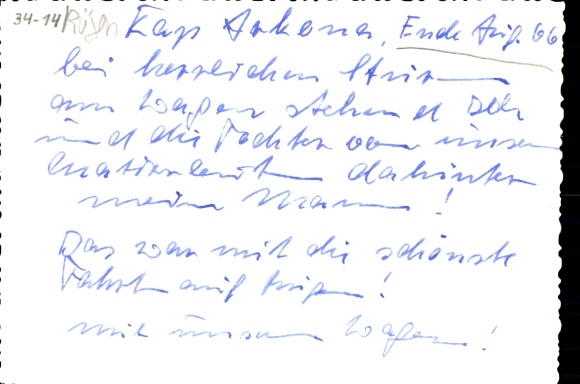 34-14 Rügen Kap Arkona, Ende Aug. 66
bei herrlichem Sturm
am Wagen stehend
und die Tochter von unseren
dahinter
mein Mann!
Das war mit die schönste
Fahrt auf Rügen!
mit unserem Wagen!